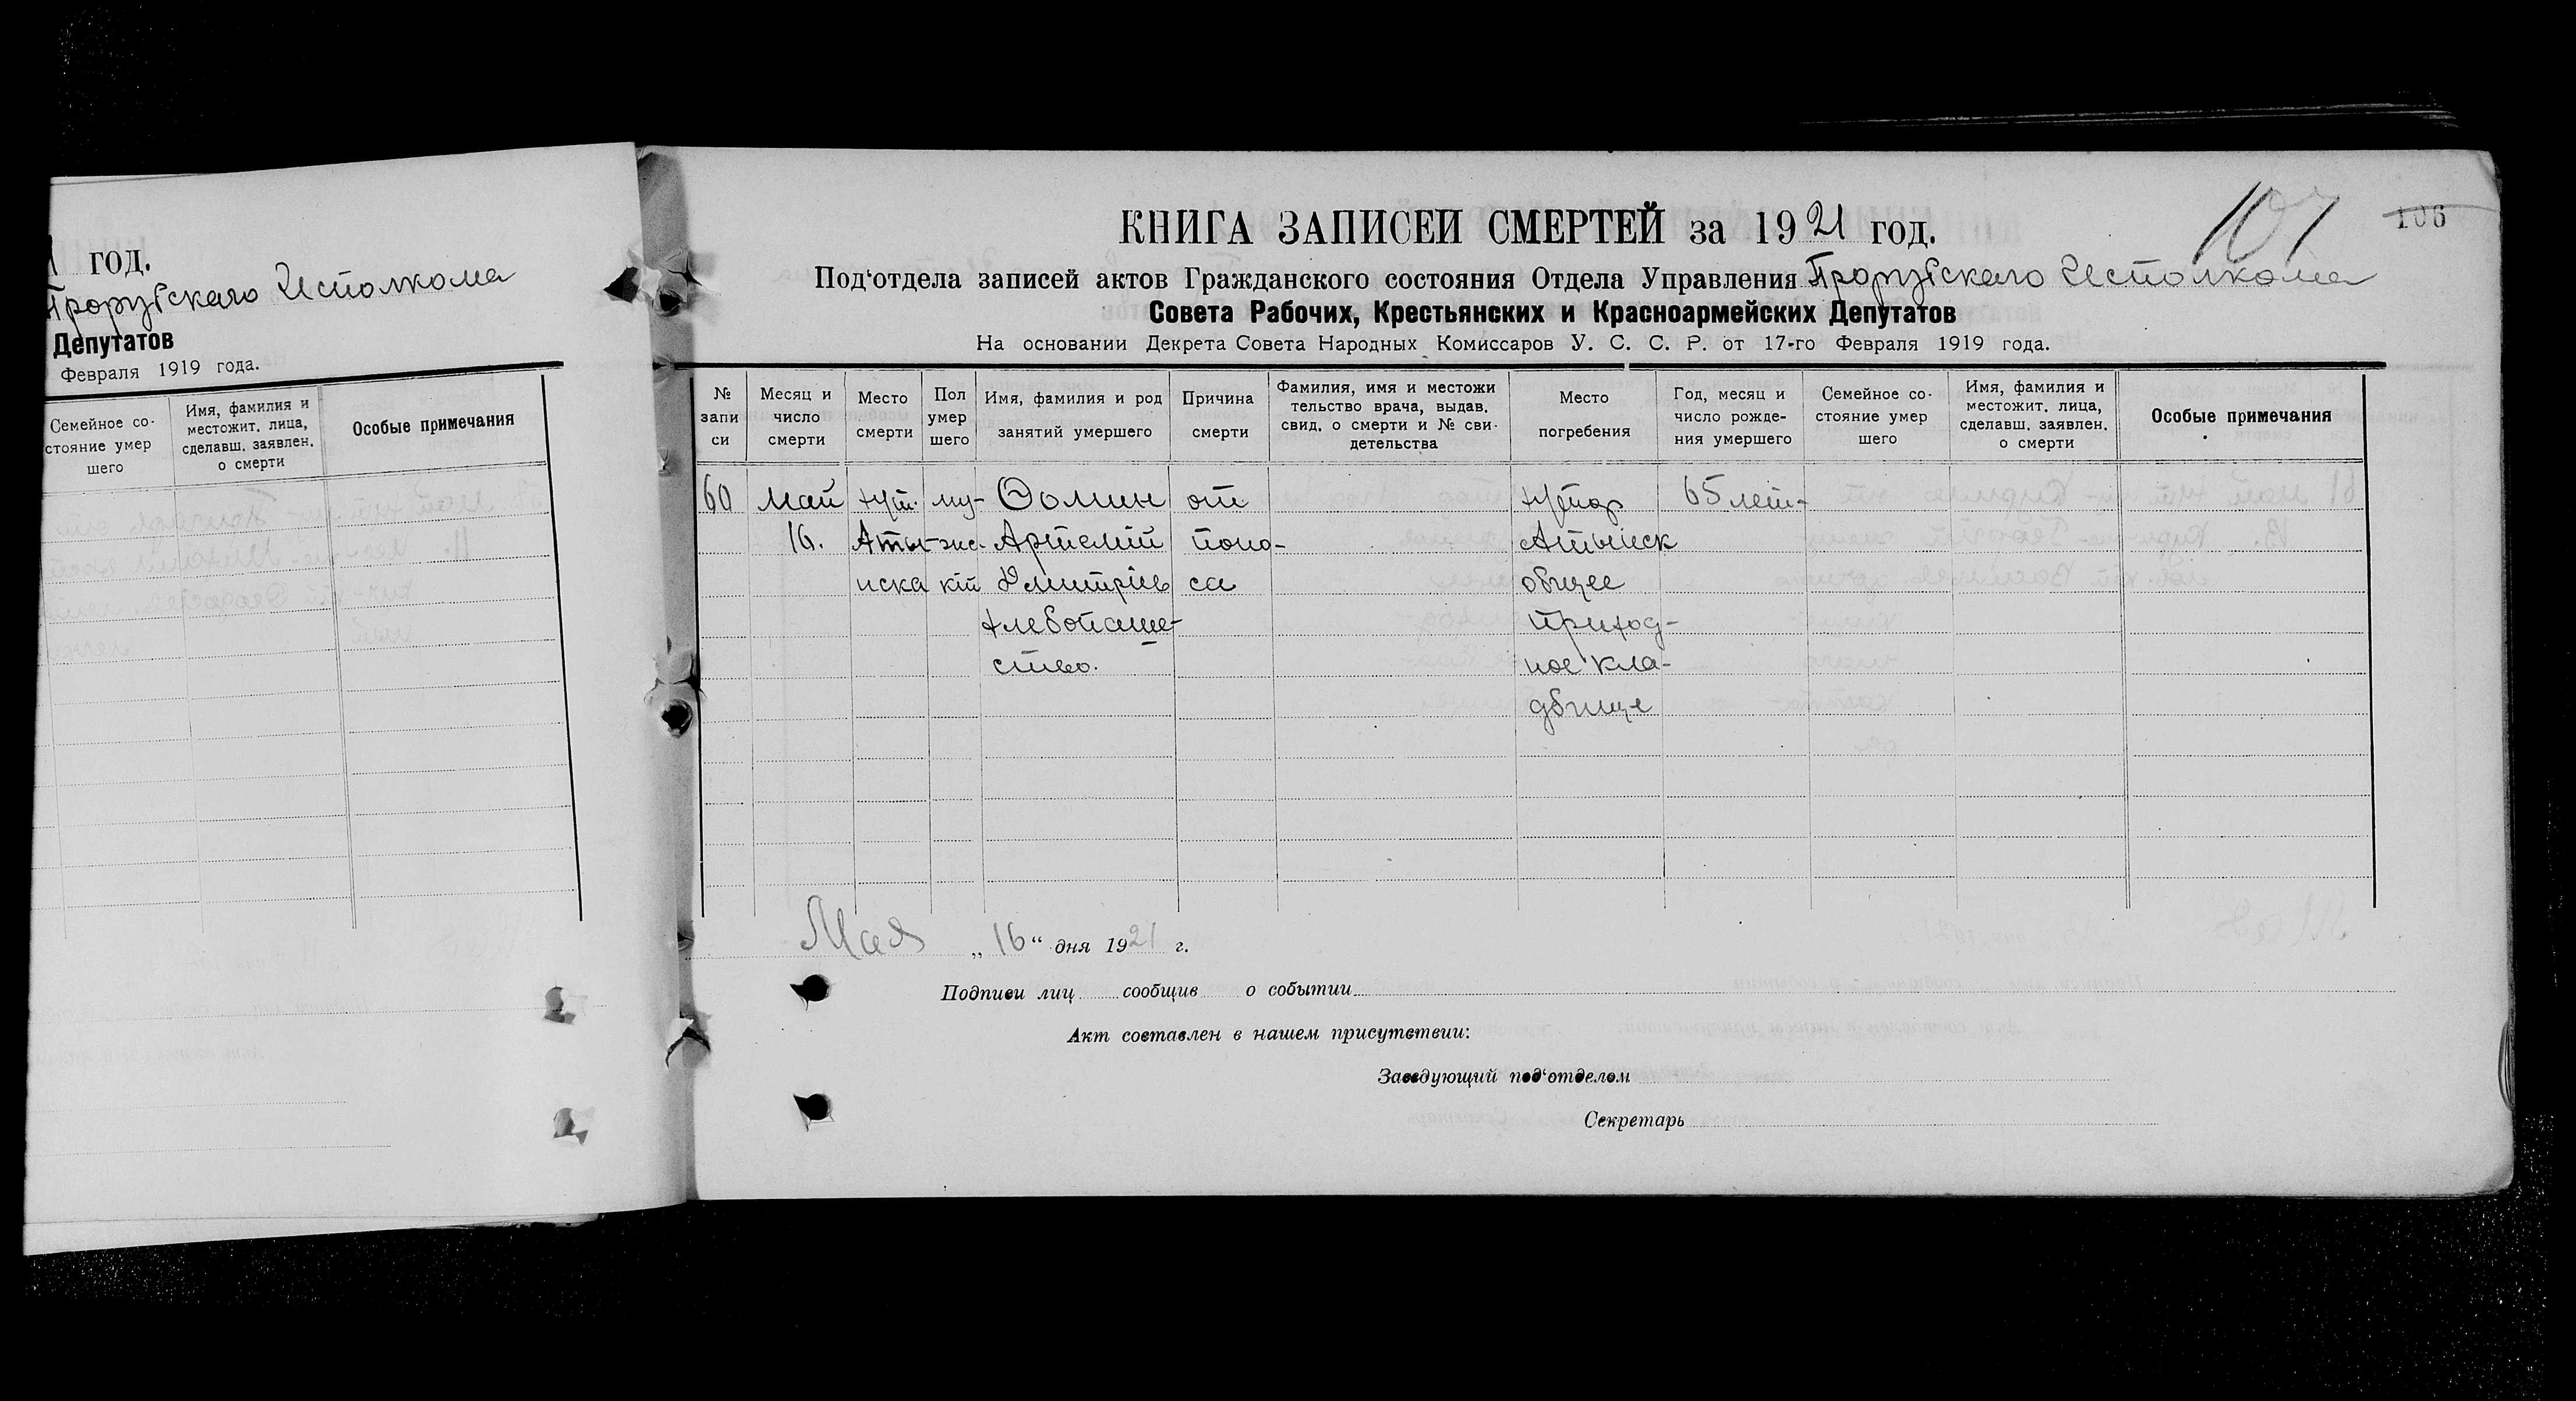 1 год.
Прорубскаго Исполкома
Депутатов
Февраля 1919 года.
Семейное со-
стояние умер
шего
Имя, фамилия и
местожит. лица,
сделавш. заявлен.
о смерти
Особые примечания
107
106
КНИГА ЗАПИСЕЙ СМЕРТЕЙ за 1921 год.
Под'отдела записей актов Гражданского состояния Отдела Управления Прорубскаго Исполкома
Совета Рабочих, Крестьянских и Красноармейских Депутатов
На основании Декрета Совета Народных Комиссаров У. С. С. Р. от 17-го Февраля 1919 года.
№
запи
си
Месяц и
число
смерти
Место
смерти
Пол
умер
шего
Имя, фамилия и род
занятий умершего
Причина
смерти
Фамилия, имя и местожи
тельство врача, выдав.
свид. о смерти и № сви-
детельства
Место
погребения
Год, месяц и
число рожде-
ния умершего
Семейное со-
стояние умер
шего
Имя, фамилия и
местожит. лица,
сделавш. заявлен.
о смерти
Особые примечания
60 Май хут. му- Ѳомин от хутор 65 лет-
16. Аты- жс- Артемій поно- Атынск
нска кій Дмитріев са общее
хлебопаше- приход-
ство. ное кла-
дбище
Мая „16“ дня 1921 г.
Подписи лиц сообщив о событии
Акт составлен в нашем присутствии:
Заведующий под'отделом
Секретарь